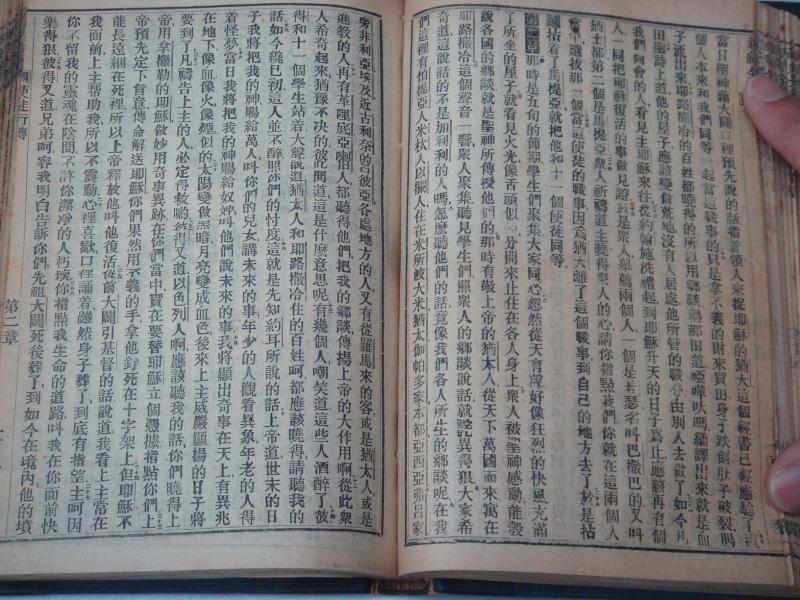 當日聖神藉大闢口裡預先說的話指着領人來捉耶穌的猶大這個經書已經應驗了
個人本來和我們同等一起當這職事的只是拿不義的財來買田身子跌倒肚子破裂腸
子流出來耶路撒冷的百姓都曉得的所以用鄉談叫那田亞大嗎繙譯出來就是血
田聖詩上道他的屋子應該變做荒地沒有人居處他所管的職分由別人去做了如今凡
我們同會的人看見主耶穌來往從約翰施洗禮起到耶穌升天的日子爲止應該再有個
人一同把耶穌復活的事做見證於是衆人舉薦兩個人一個是約瑟名叫巴撒巴的又叫
猶士都第二個是馬提亞衆人祈禱道主曉得衆人的心請你指點我們你就在這兩個人
中選拔那一個當這使徒的職事因爲猶大離了這個職事到自己的地方去了於是拈
鬮拈着了馬提亞就把他和十一個使徒同等
第二章那時是五旬的節期學生們聚集大家同心忽然從天有聲好像狂烈的快風充滿
了所坐的屋子就看見火光像舌頭似的分開來止住在各人身上衆人被聖神感動能彀
說各國的鄉談就是聖神所傳授他們的那時有敬上帝的猶太人從天下萬國而來寓在
耶路撒冷這個聲音一響衆人聚集聽見學生們照衆人的鄉談說話就詫異得狠大家希
奇道這說話的不是加利利的人嗎怎麽聽他們的話竟像我們各人所生的鄉談呢在我
們這裡有怕提亞人米杕人以攔人住在米所波大米猶太伽帕多家本都亞西亞弗呂家
旁非利亞埃及近古利奈的呂彼亞各處地方的人又有從羅馬來的客或是猶太人或是
進教的人再有革哩底亞喇伯人都聽得他們把我的鄉談傳揚上帝的大作用啊從此衆
人希奇起來猶豫不决的彼此問道這是什麽意思呢有幾個人嘲笑道這些人酒醉了彼
得和十一個學生站着大聲說道猶太人和耶路撒冷住的百姓呵都應該曉得請聽我的
話如今纔巳初這人並不醉照你們的忖度這就是先知約耳所說的話上帝道世末的日
子我將把我的神賜給萬人叫你們的兒女講未來的事年少的人觀看異象年老的人得
着怪夢當日我將把我的神賜給奴婢叫他們說未來的事我將顯出奇事在天上有異兆
在地下像血像火像煙似的太陽變做黑暗月亮變成血色後來上主威嚴顯揚的日子將
要到了凡禱告上主的人必定得救喲彼得又道以色列人啊應該聽我的話你們曉得上
帝用拿撒勒的耶穌做妙用奇事異跡在你們當中實在要替耶穌立個憑據指點你們上
帝預先定下旨意傳命解送耶穌你們果然用不義的手拿他釘死在十字架上但耶穌不
能長遠綑在死裡所以上帝釋放他叫他復活從前大闢引基督的話說道我看上主常在
我面前上主帮助我所以不震動心裡喜歡口裡誦着雖然身子葬了到底有指望主呵因
你不留我的靈魂在陰間不許你潔净的人朽壞你指點我生命的道路叫我在你面前快
樂得狠彼得又道兄弟呵容我明白告訴你們先祖大闢死後葬了到如今在境內他的墳
使徒行傳
第二章